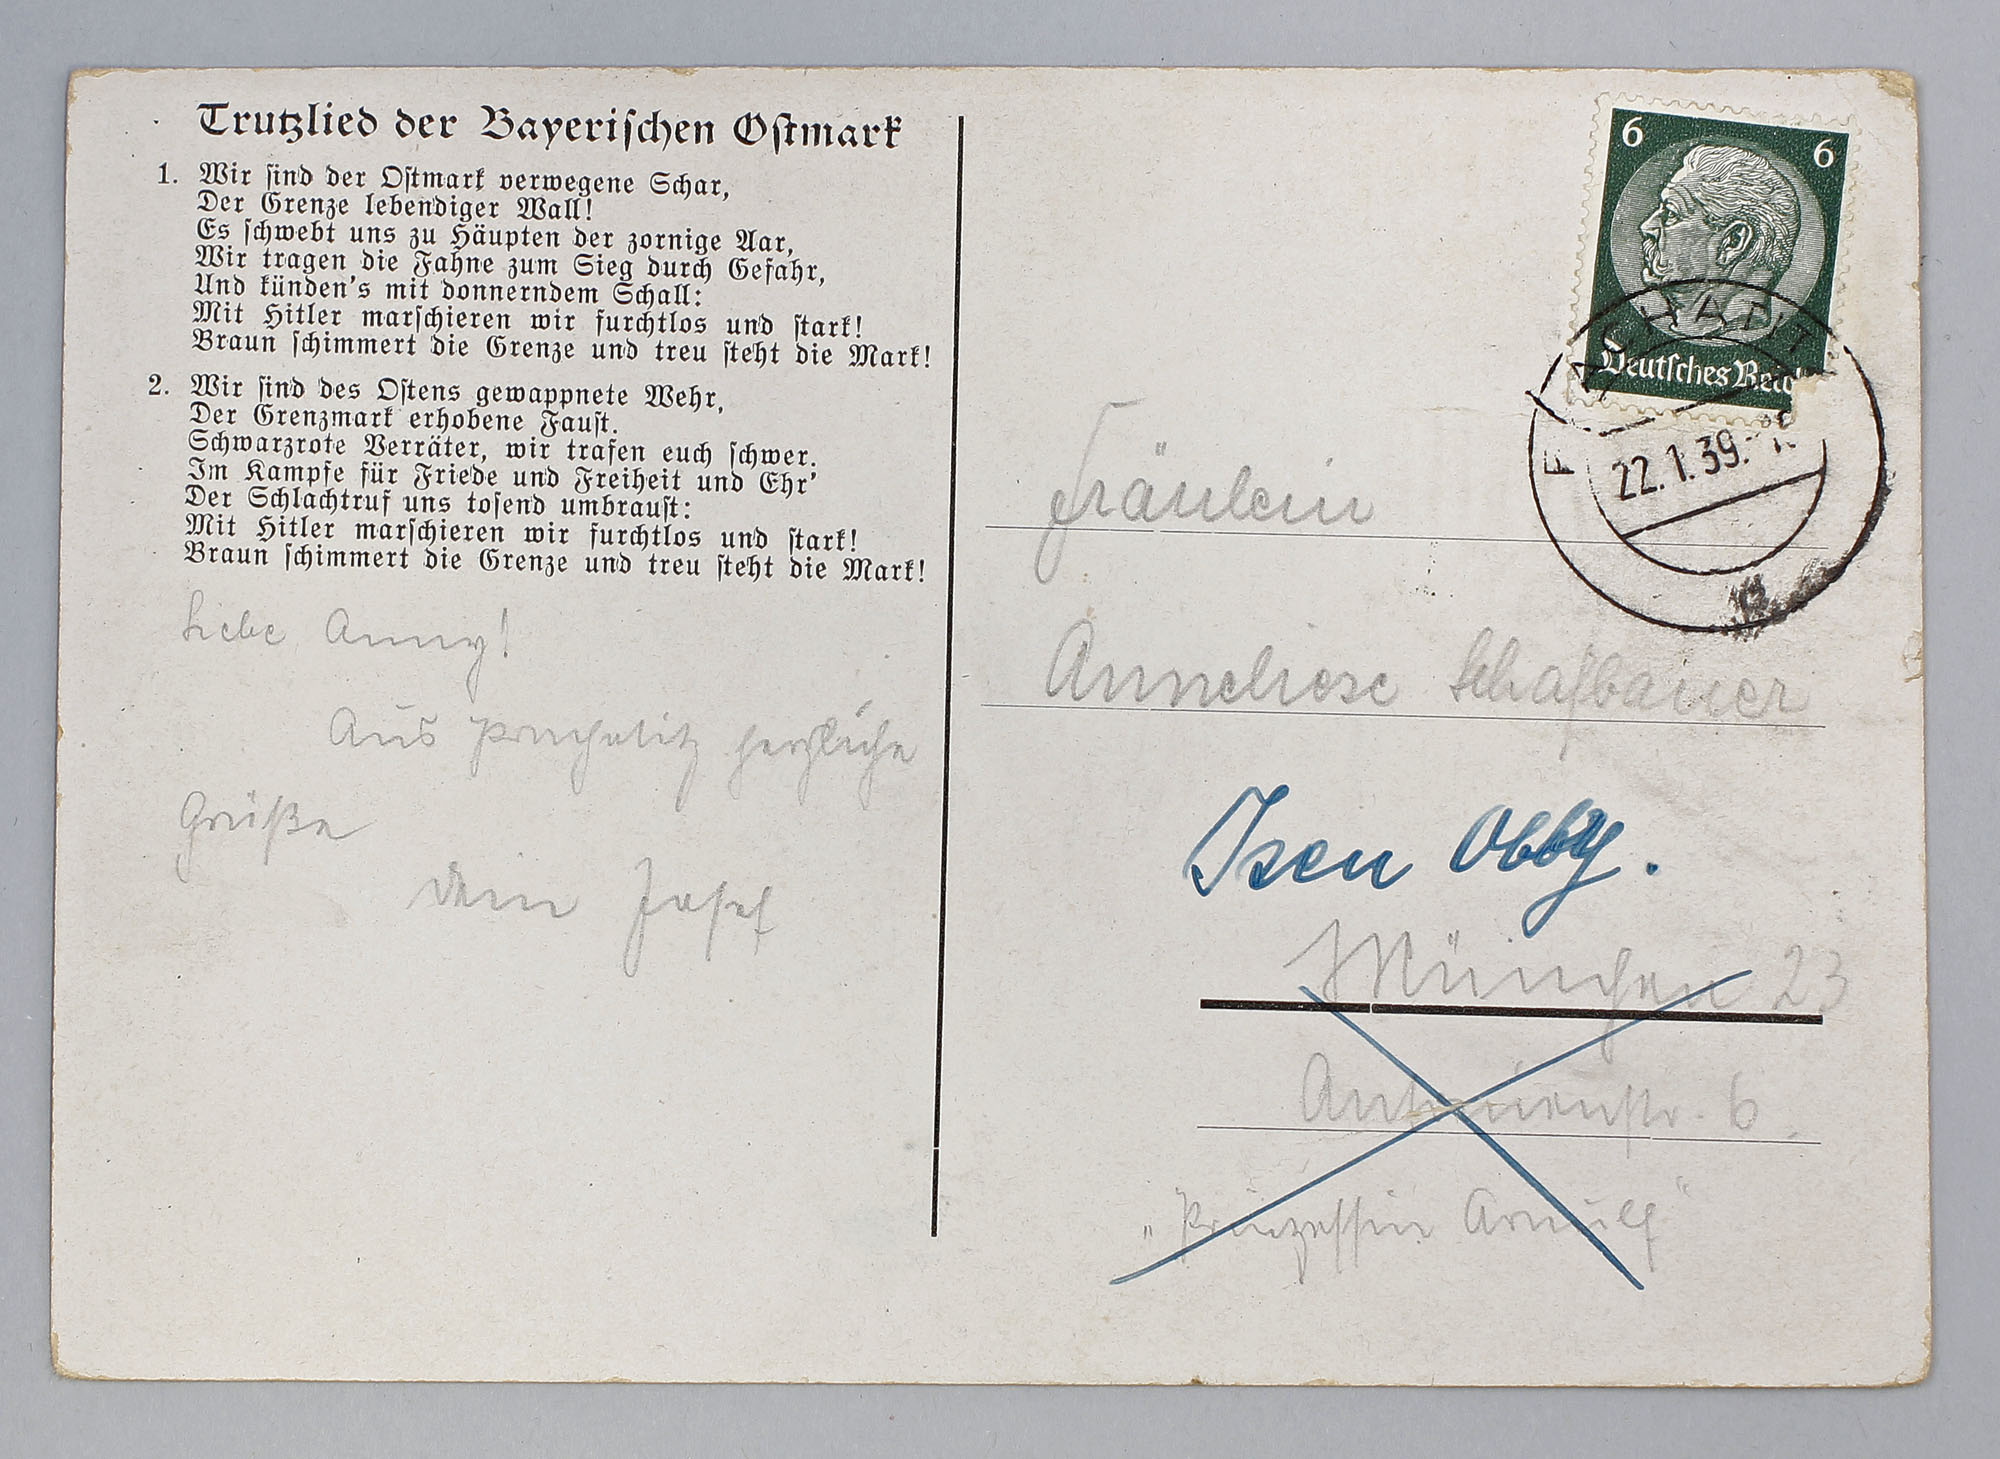 Trutzlied der Bayerischen Ostmark
1. Wir sind der Ostmark verwegene Schar,
Der Grenze lebendiger Wall!
Es schwebt uns zu Häupten der zornige Aar,
Wir tragen die Fahne zum Sieg durch Gefahr,
Und künden's mit donnerndem Schall:
Mit Hitler marschieren wir furchtlos und stark!
Braun schimmert die Grenze und treu steht die Mark!
2. Wir sind des Ostens gewappnete Wehr,
Der Grenzmark erhobene Faust.
Schwarzrote Verräter, wir trafen euch schwer.
Im Kampfe für Friede und Freiheit und Ehr'
Der Schlachtruf uns tosend umbraust:
Mit Hitler marschieren wir furchtlos und stark!
Braun schimmert die Grenze und treu steht die Mark!
Liebe Anny!
Aus herzliche
Grüße
Dein Josef
6 6
Deutsches Reich
22.1.39.
Fräulein
Anneliese Schafbauer
Isen Obby.
München 23
Antonienstr. 6.
„Prinzessin Arnulf"